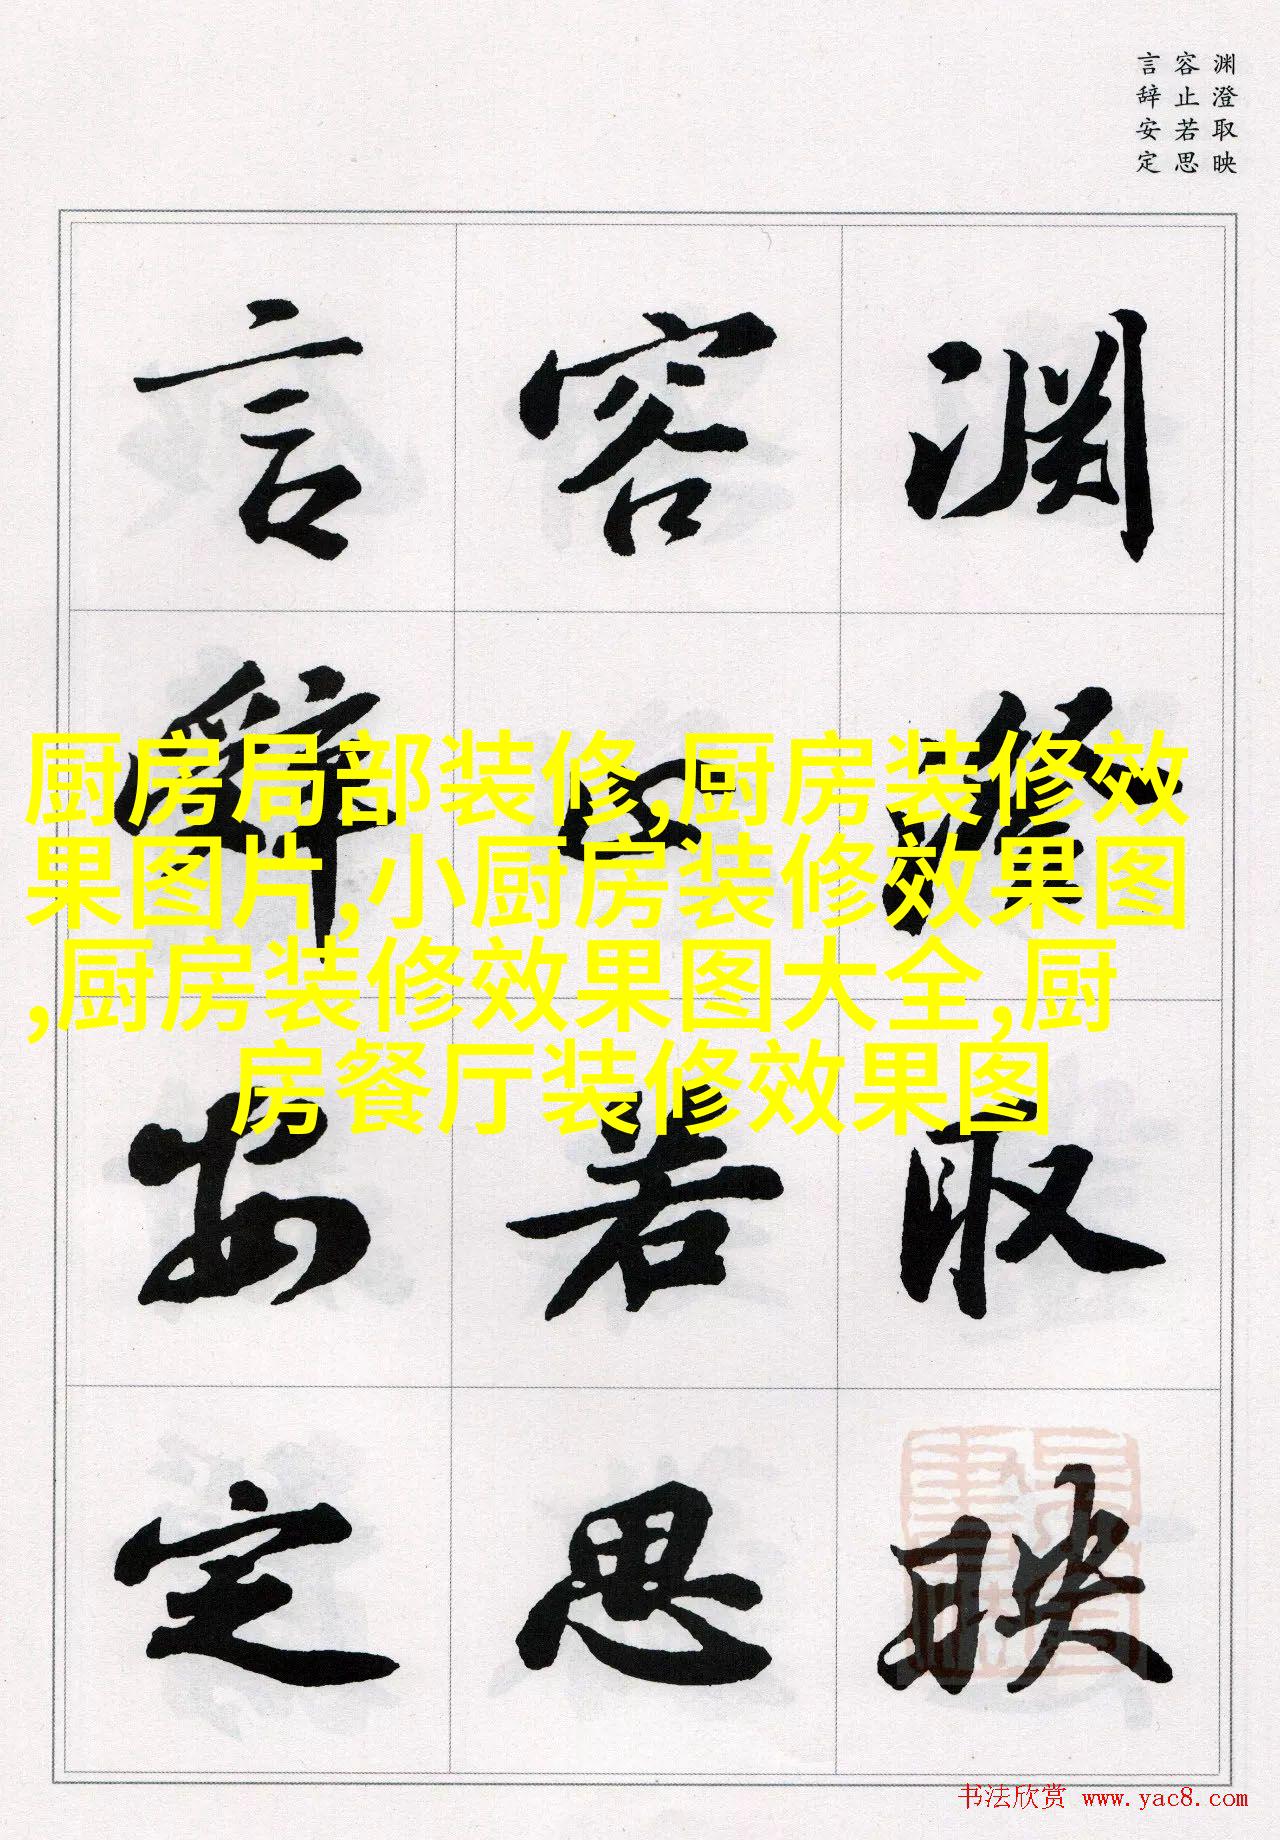 渊澄取映
容止若思
言辞安定
渊澄取映
容止若思
言辞安定
厨房局部装修,厨房装修效
果图片,小厨房装修效果图
,厨房装修效果图大全,厨
房餐厅装修效果图
书法欣赏 www.yac8.com